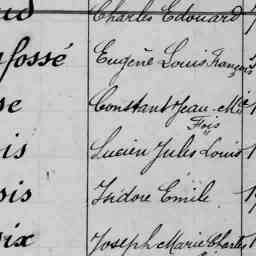 ud Charles Edouard
ufossé Eugène Louis François
se Constant Jean-Mie
Fois
is Lucien Jules Louis 1
sis Isidore Emile 19
six Joseph Marie Charles 1